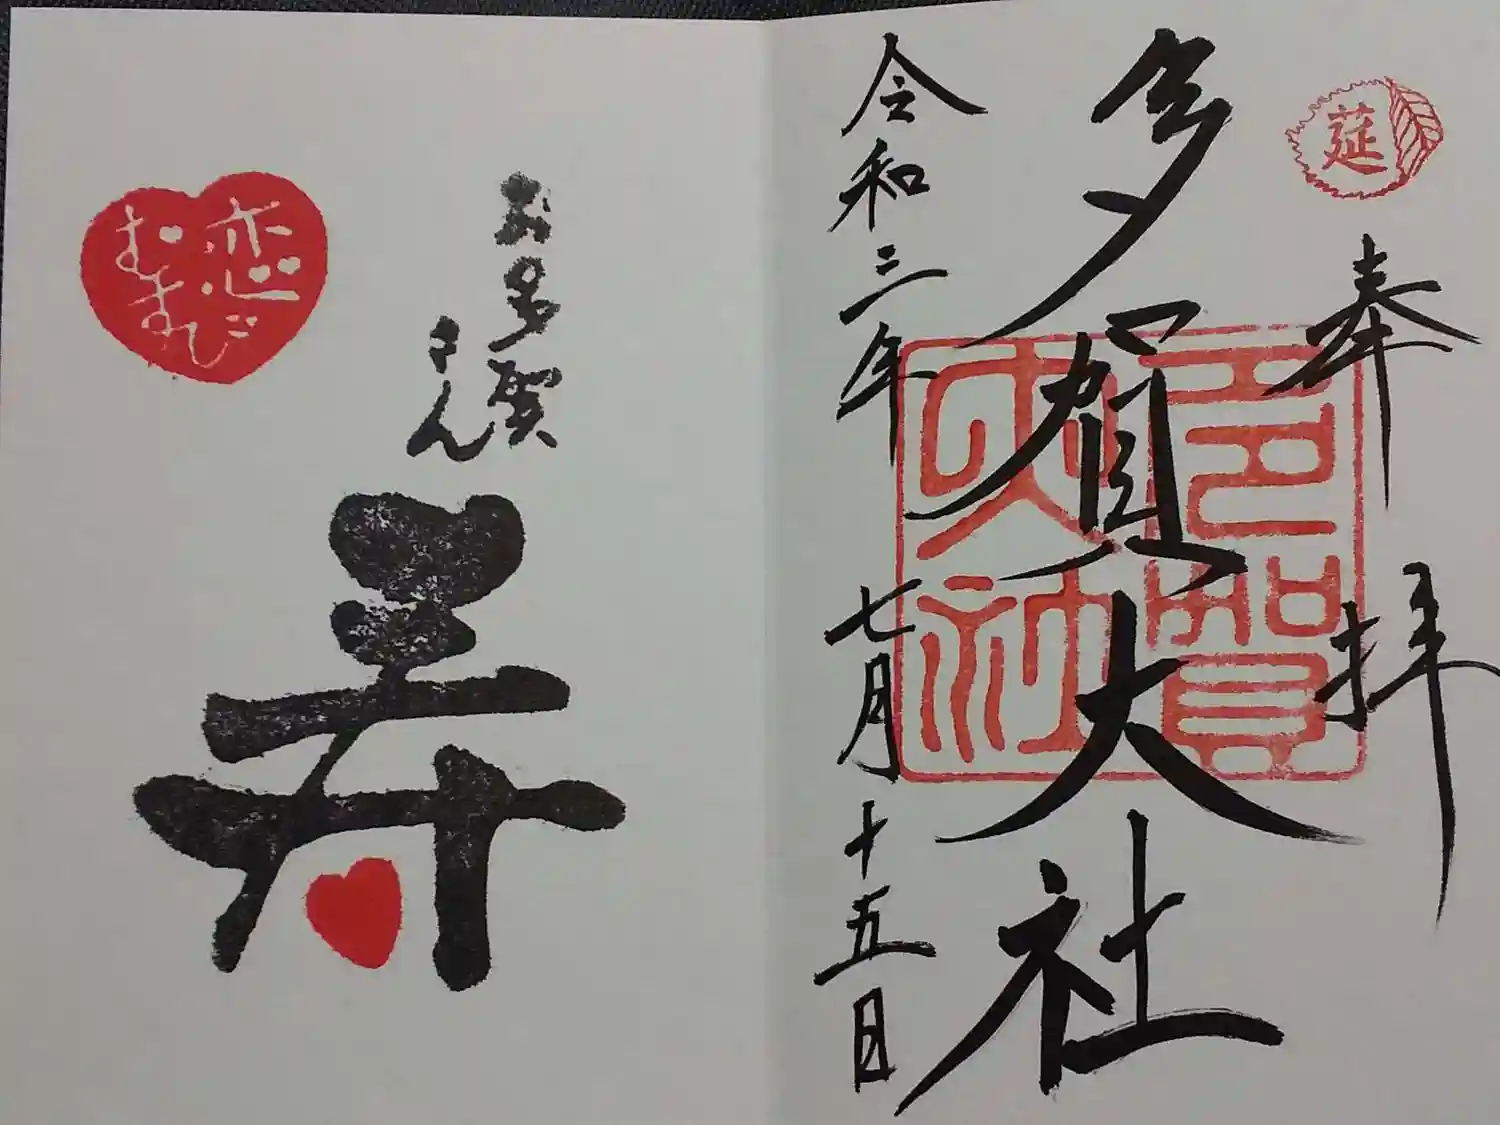 莚
奉拝
多賀大社
多賀大社
令和三年七月十五日
お多賀
さん
寿
恋
むすび